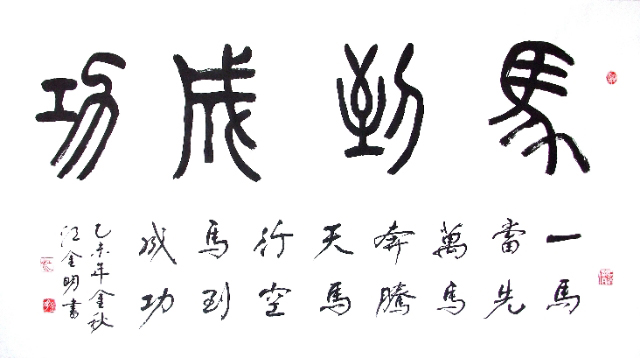 馬到成功
一馬
當先
萬馬
奔騰
天馬
行空
馬到
成功
乙未年金秋
金明書